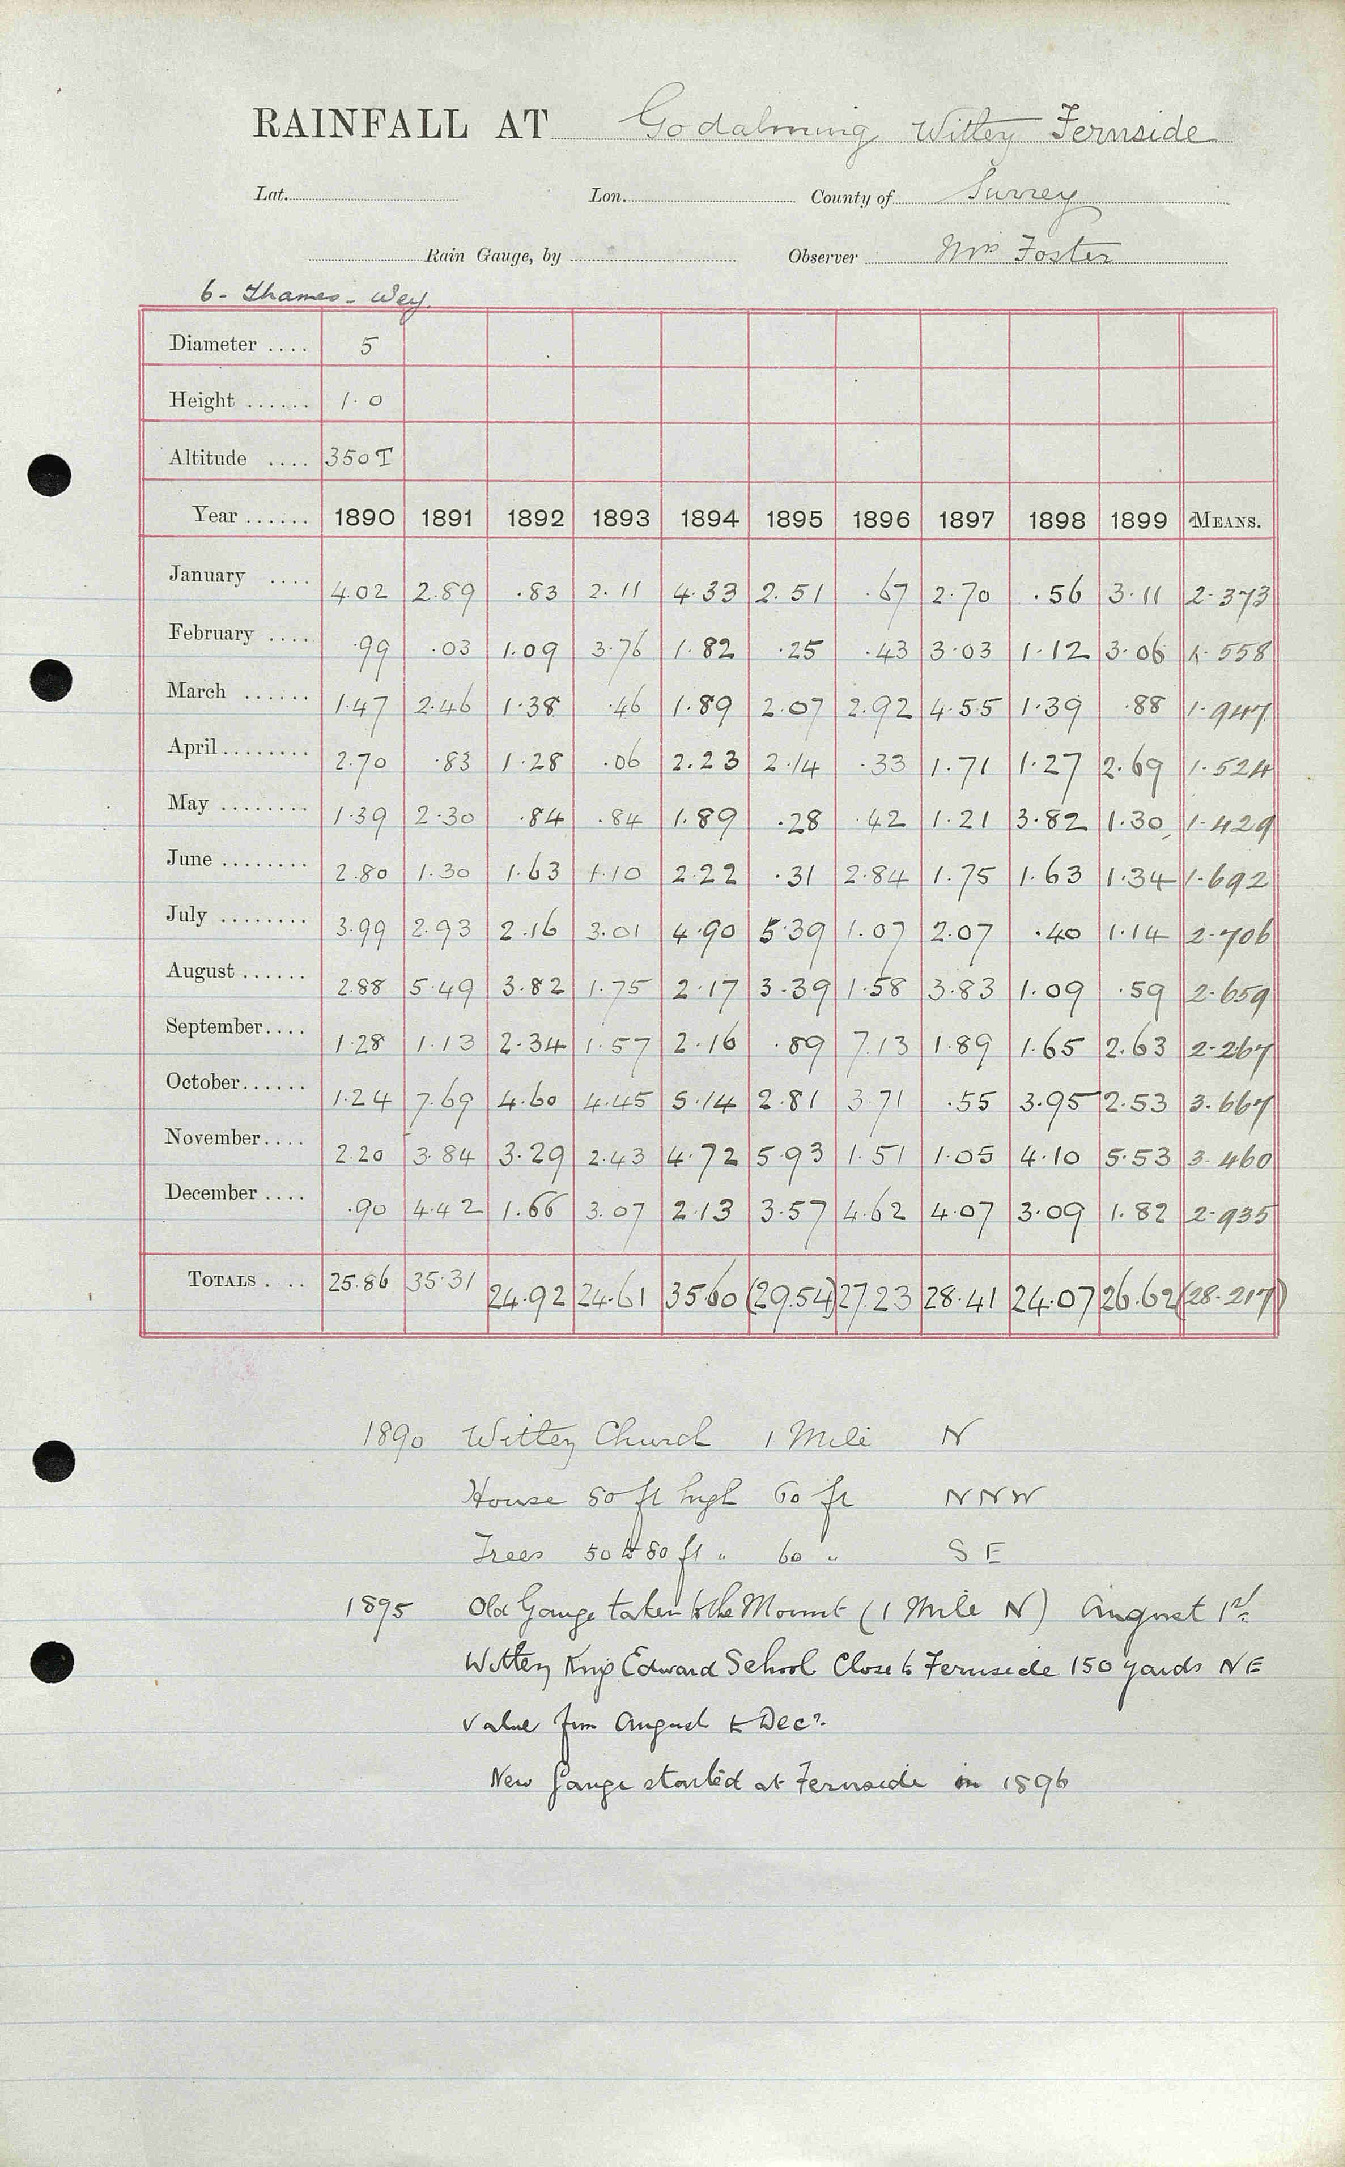 RAINFALL AT Godalming Witley Fernside
Lat. Lon. County of Surrey
Rain Gauge, by Observer Mrs Foster
6 - Thames - Wey.
Diameter .... 5
Height ...... 1.0
Altitude .... 350T
Year ...... 1890 1891 1892 1893 1894 1895 1896 1897 1898 1899 MEANS.
January .... 4.02 2.89 .83 2.11 4.33 2.51 .67 2.70 .56 3.11 2.373
February .... .99 .03 1.09 3.76 1.82 .25 .43 3.03 1.12 3.06 1.558
March ...... 1.47 2.46 1.38 .46 1.89 2.07 2.92 4.55 1.39 .88 1.947
April ........ 2.70 .83 1.28 .06 2.23 2.14 .33 1.71 1.27 2.69 1.524
May ........ 1.39 2.30 .84 .84 1.89 .28 .42 1.21 3.82 1.30 1.429
June ........ 2.80 1.30 1.63 1.10 2.22 .31 2.84 1.75 1.63 1.34 1.692
July ........ 3.99 2.93 2.16 3.01 4.90 5.39 1.07 2.07 .40 1.14 2.706
August ...... 2.88 5.49 3.82 1.75 2.17 3.39 1.58 3.83 1.09 .59 2.659
September .... 1.28 1.13 2.34 1.57 2.16 .89 7.13 1.89 1.65 2.63 2.267
October ...... 1.24 7.69 4.60 4.45 5.14 2.81 3.71 .55 3.95 2.53 3.667
November .... 2.20 3.84 3.29 2.43 4.72 5.93 1.51 1.05 4.10 5.53 3.460
December .... .90 4.42 1.66 3.07 2.13 3.57 4.62 4.07 3.09 1.82 2.935
TOTALS . .. 25.86 35.31 24.92 24.61 35.60 (29.54) 27.23 28.41 24.07 26.62 (28.217)
1890 Witley Church 1 Mile N
House 50 ft high 60 ft NNW
Trees 50 to 80 ft " 60 " SE
1895 Old Gauge taken to the Mount (1 Mile N) August 1st.
Witley King Edward School Close to Fernside 150 yards NE
value from August to Decr.
New Gauge started at Fernside in 1896